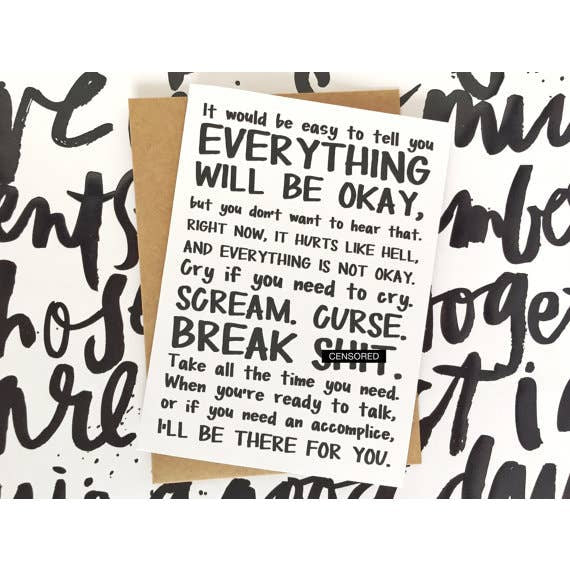 It would be easy to tell you
EVERYTHING
WILL BE OKAY,
but you don't want to hear that.
RIGHT NOW, IT HURTS LIKE HELL,
AND EVERYTHING IS NOT OKAY.
Cry if you need to cry.
SCREAM. CURSE.
BREAK SHIT.
CENSORED
Take all the time you need.
When you're ready to talk,
or if you need an accomplice,
I'LL BE THERE FOR YOU.